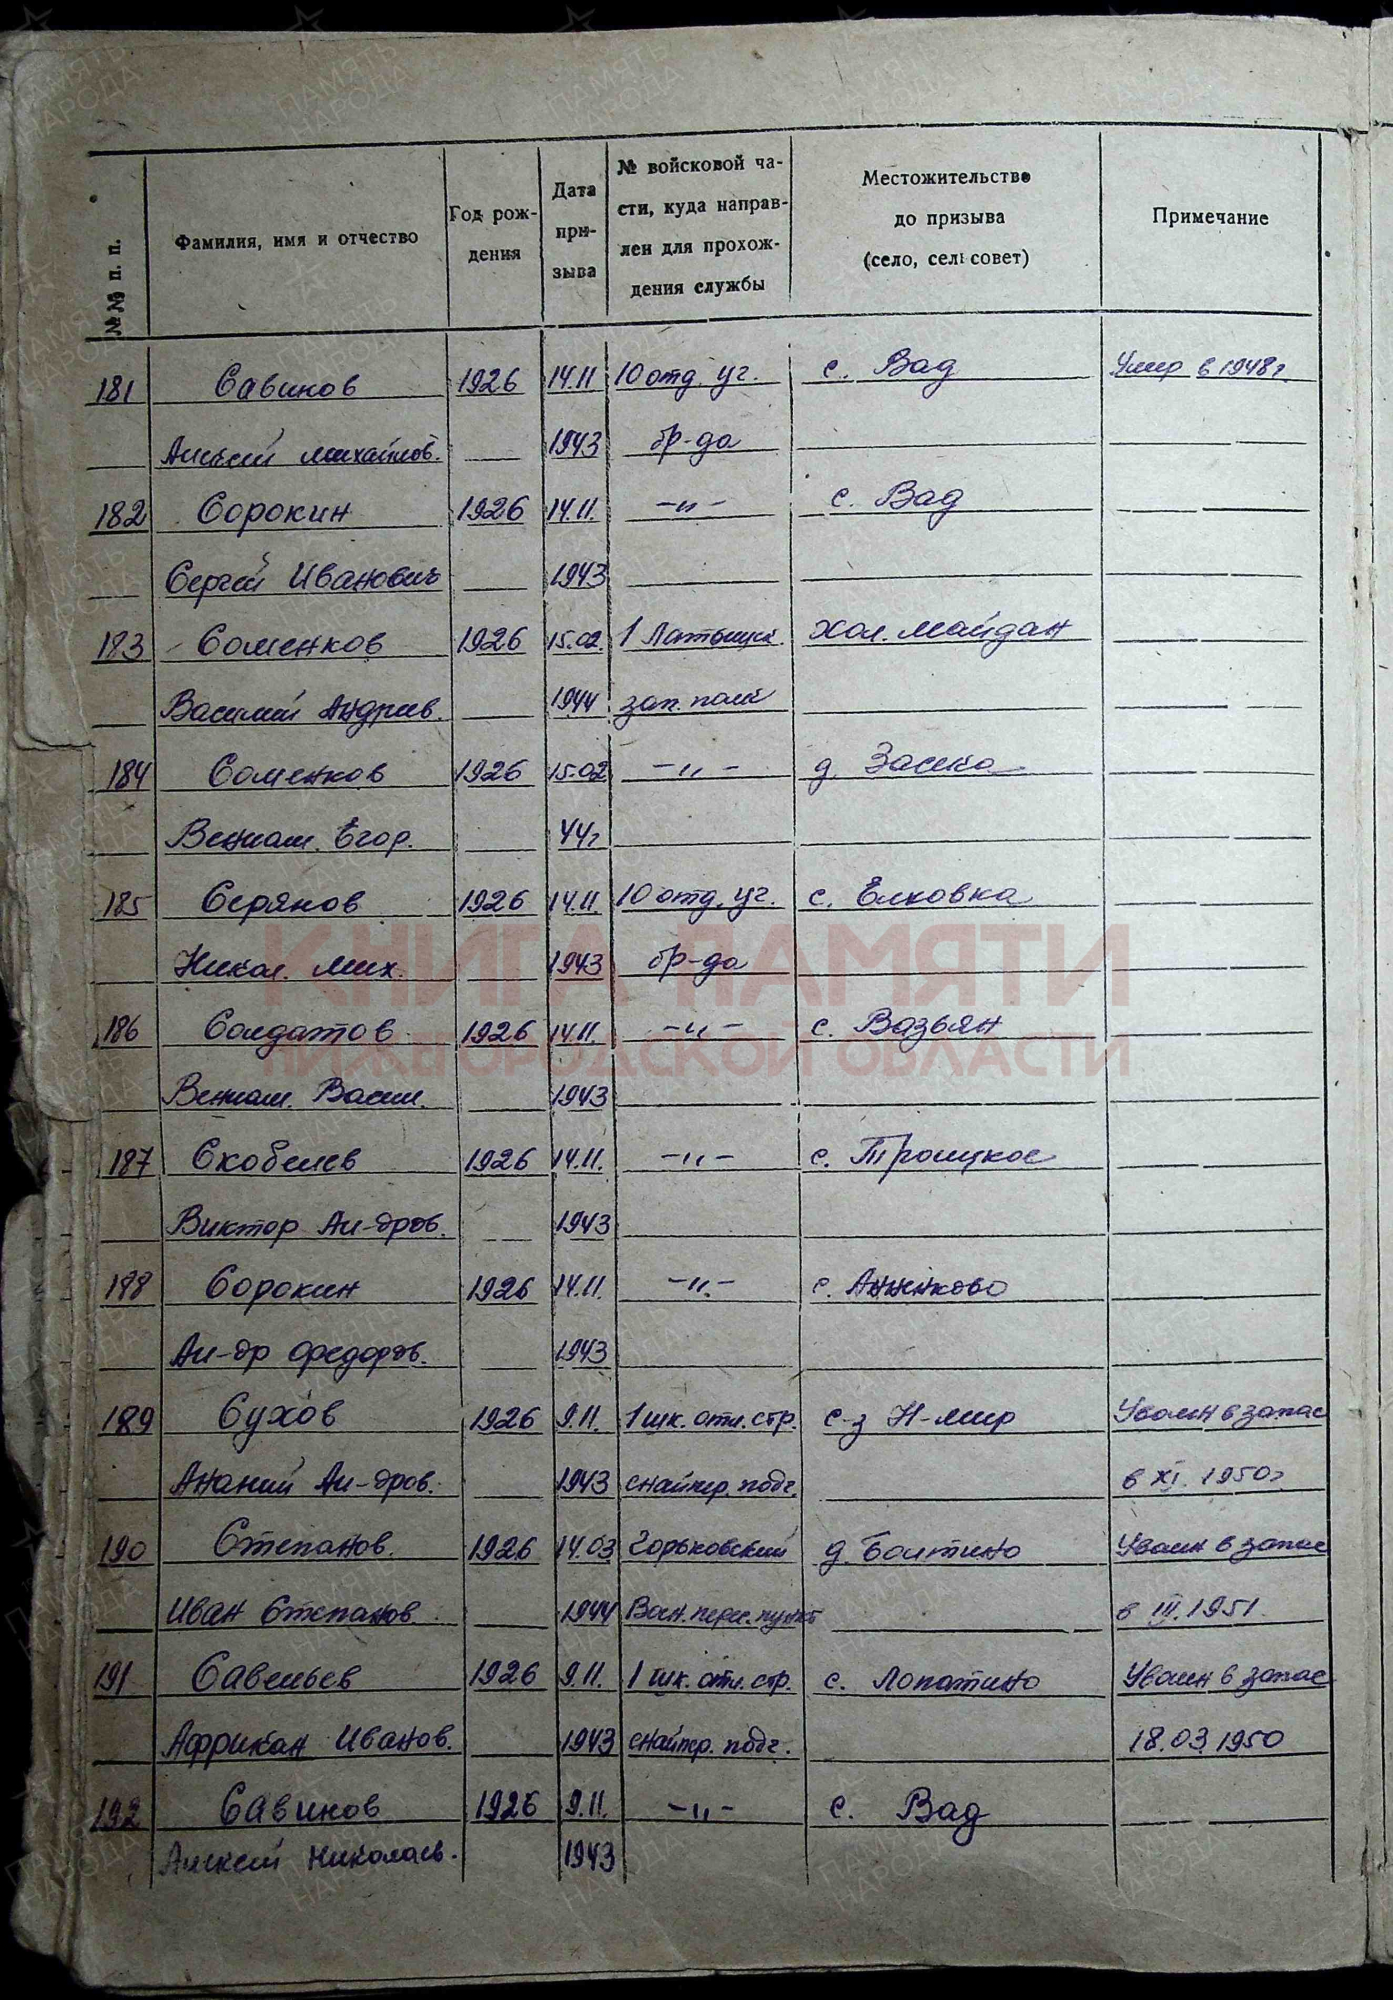 №№ п. п.
Фамилия, имя и отчество
Год рож-
дения
Дата
при-
зыва
№ войсковой ча-
сти, куда направ-
лен для прохож-
дения службы
Местожительство
до призыва
(село, сельсовет)
Примечание
181 Савинов 1926 14.11 10 отд. уч. с. Вад Умер в 1948 г.
Алексей Михайлов. 1943 бр-да
182 Сорокин 1926 14.11. -"- с. Вад
Сергей Иванович 1943
183 Соменков 1926 15.02. 1 Латышск. Хол. Майдан
Василий Андреев. 1944 зап. полк
184 Соменков 1926 15.02 -"- д.
Вениам. Егор. 44г
185 Серянов 1926 14.11. 10 отд. уч. с. Елховка
Никол. Мих. 1943 бр-да
186 Солдатов 1926 14.11. -"- с. Вазьян
Вениам. Васил. 1943
187 Скобелев 1926 14.11. -"- с. Троицкое
Виктор Ал-дров. 1943
188 Сорокин 1926 14.11. -"- с. Анненково
Ал-др Федоров. 1943
189 Сухов 1926 9.11. 1 шк. отл. стр. с-з Н-мир Уволен в запас
Ананий Ал-дров. 1943 снайпер. подг. в XI. 1950г
190 Степанов. 1926 14.03 Горьковский д. Болтино Уволен в запас
Иван Степанов. 1944 Воен. перес. пункт в III. 1951
191 Савельев 1926 9.11. 1 шк. отл. стр. с. Лопатино Уволен в запас
Африкан Иванов. 1943 снайпер. подг. 18.03.1950
192 Савинов 1926 9.11. -"- с. Вад
Алексей Николаев. 1943
КНИГА ПАМЯТИ
НИЖЕГОРОДСКОЙ ОБЛАСТИ
ПАМЯТЬ
НАРОДА